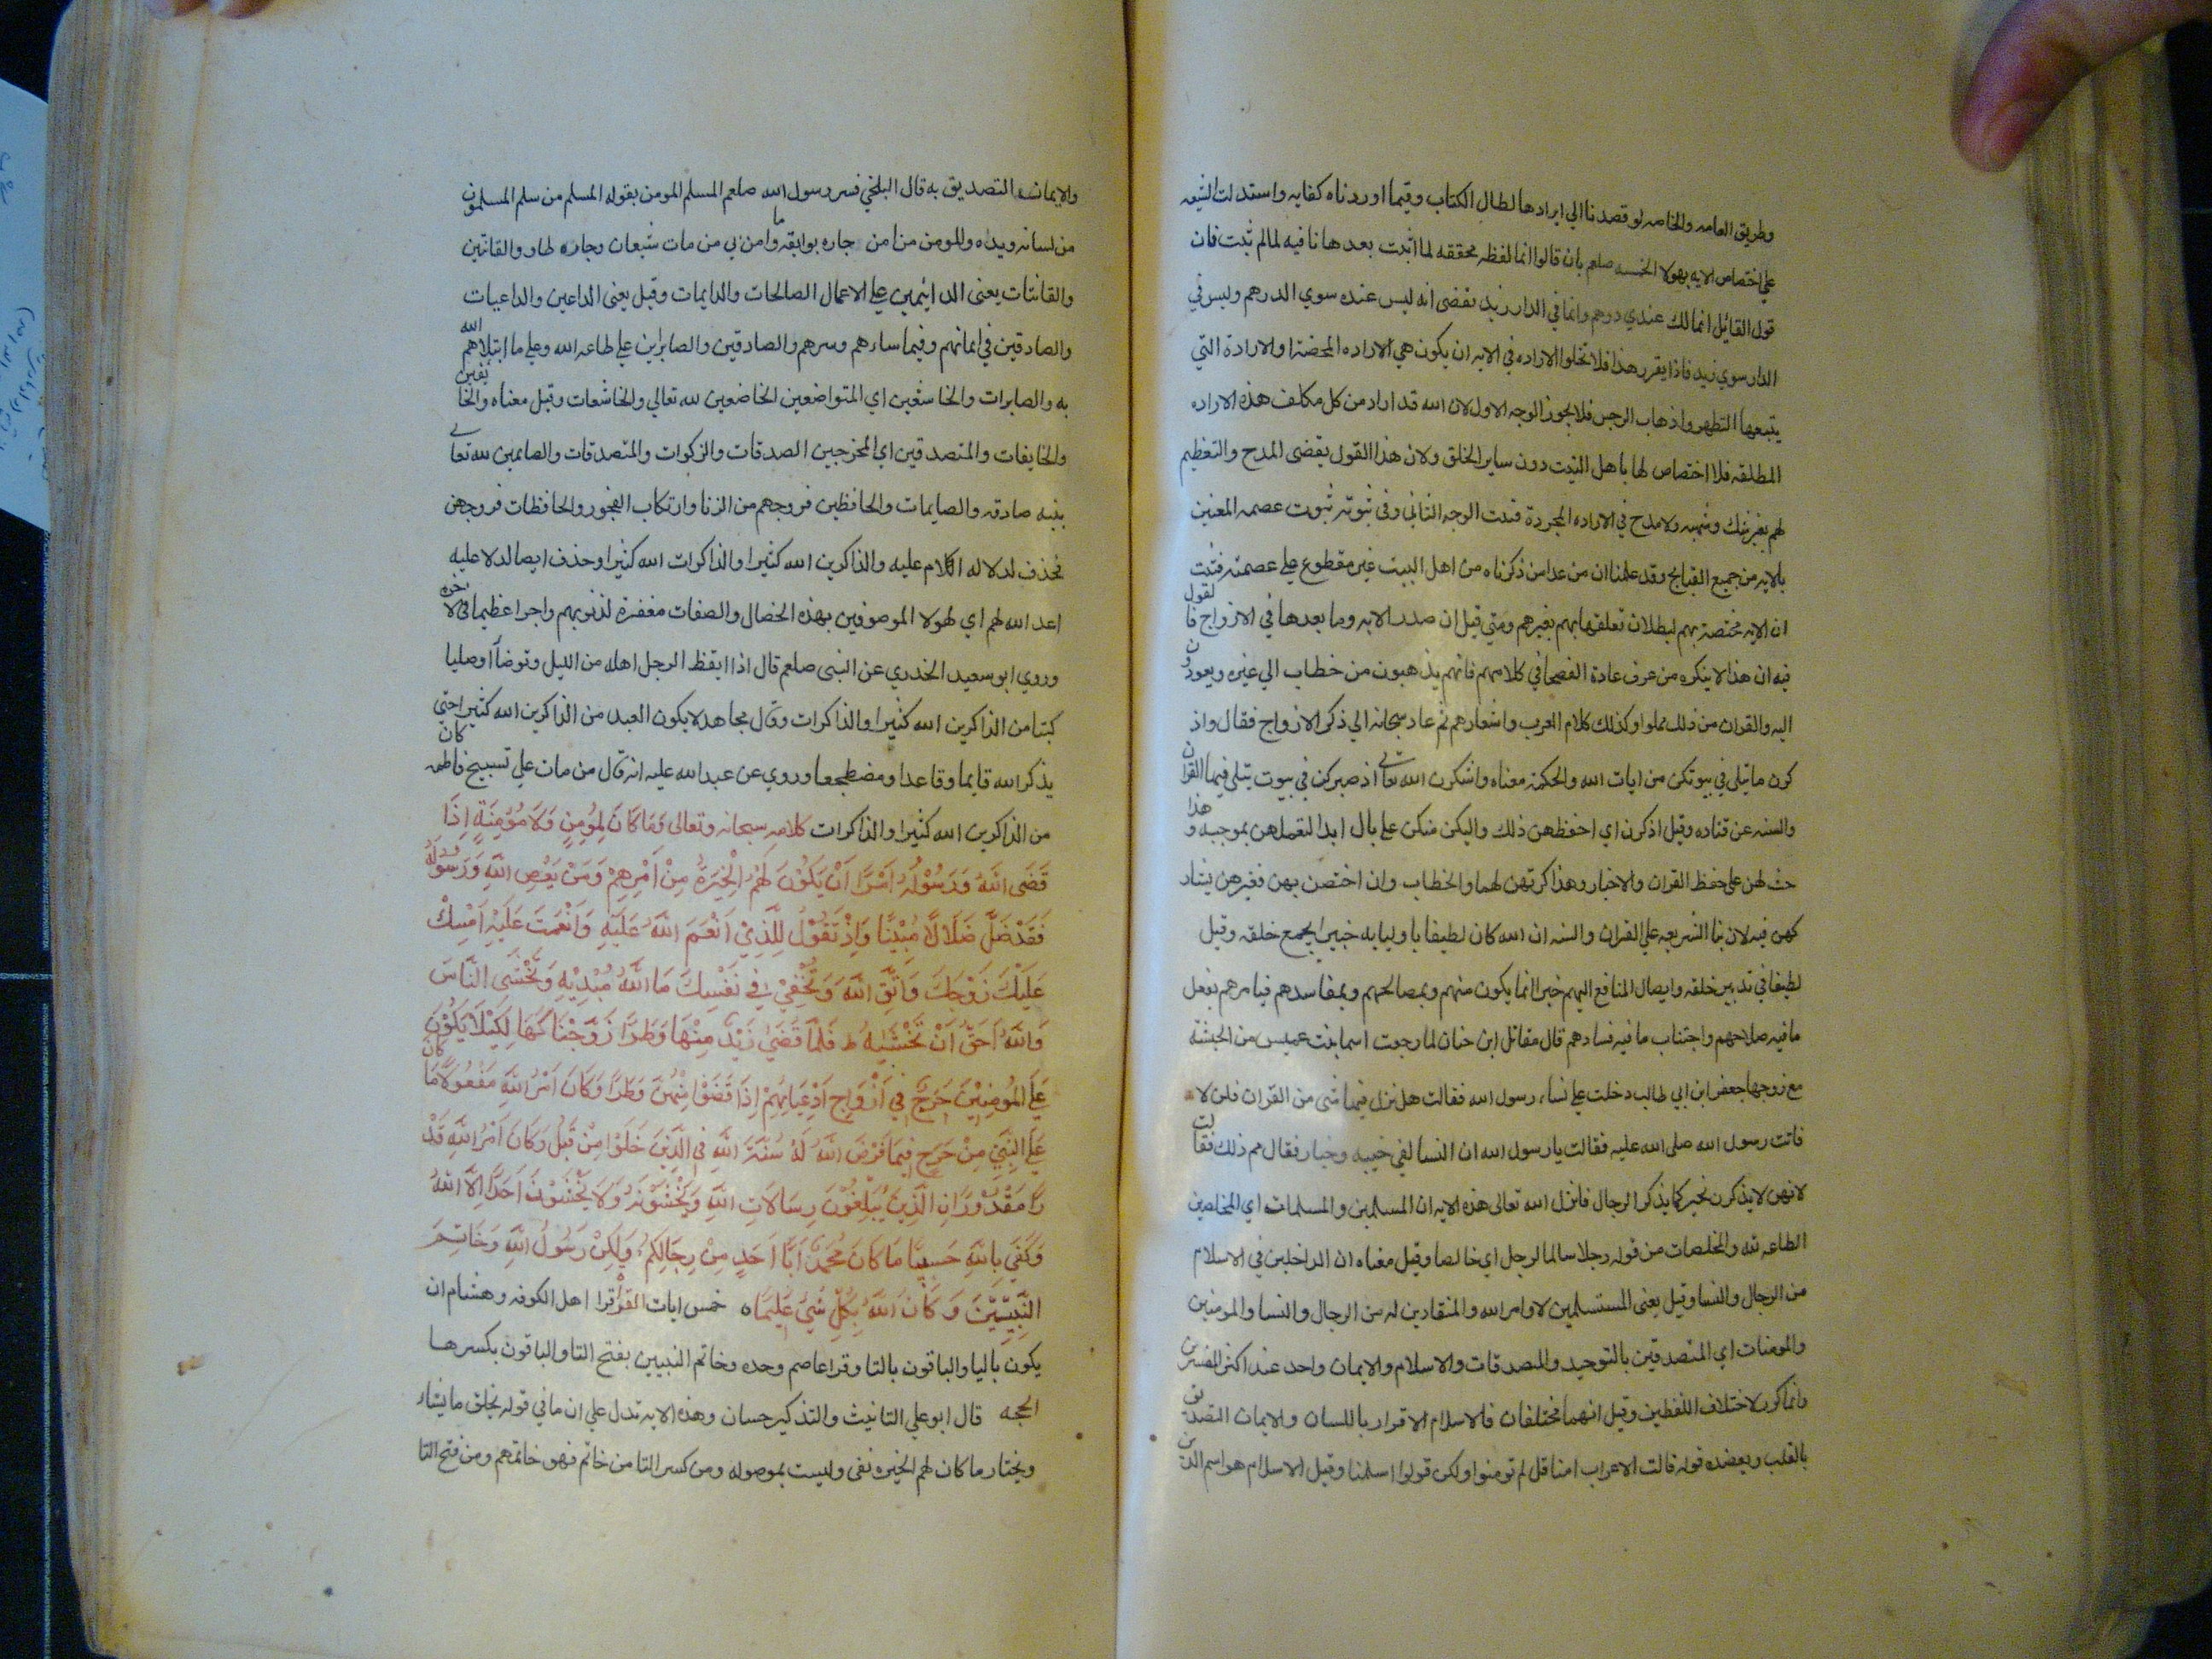 وطريق العامه والخاصه لو قصدنا الي ايرادها لطال الكتاب وفيما اوردناه كفايه واستدلت الشيعه
علي اختصاص الايه بهولا الخمسه صلعم بان قالوا انما لفظه محققه لما اثبت بعدها نافيه لما لم تثبت فان
قول القائل انما لك عندي درهم وانما في الدار زيد يقضى انه ليس عنده سوي الدرهم وليس في
الدار سوي زيد فاذا يقرر هذا فلا تخلوا الاراده في الايه ان يكون هي الاراده المحضة او الارادة التي
يتبعها التطهر واذهاب الرجس فلا يجوز الوجه الاول لان الله قد اراد من كل مكلف هذه الاراده
المطلقه فلا اختصاص لها باهل البيت دون ساير الخلق ولان هذا القول يقضى المدح والتعظيم
لهم بغير شك وشبهه ولا مدح في الاراده المجردة فثبت الوجه الثاني وفي ثبوته ثبوت عصمه المعنين
بالايه من جميع القبايح وقد علمنا ان من عدا من ذكرناه من اهل البيت غير مقطوع علي عصمته فثبت
ان الايه مختصة بهم لبطلان تعلقها بهم بغيرهم ومتي قيل ان صدر الايه وما بعدها في الازواج فالقول
فيه ان هذا لا ينكره من عرف عادة الفصحا في كلامهم فانهم يذهبون من خطاب الي غيره ويعودون
اليه والقران من ذلك مملوا وكذلك كلام العرب واشعارهم ثم عاد سبحانه الي ذكر الازواج فقال واذ
كرن ما يتلى في بيوتكن من ايات الله والحكمة معناه واشكرن الله تعالي اذ صيركن في بيوت يتلى فيها القران
والسنه عن قتاده وقيل اذكرن اي احفظهن ذلك واليكن منكن علي بال ابدا لتعملهن بموجبه وهذا
حث لهن على حفظ القران والاخبار وهذا كرتهن لهما والخطاب وان اختصن بهن فغيرهن يشار
كهن فيه لان بنا الشريعه علي القران والسنه ان الله كان لطيفا باوليايه خبيرا بجمع خلقه وقيل
لطيفا في تدبير خلقه وايصال المنافع اليهم خبيرا انما يكون منهم وبمصالحهم وبمفاسدهم فيامرهم بفعل
ما فيه صلاحهم واجتناب ما فيه فسادهم قال مقاتل ابن حنان لما رجعت اسما بنت عميس من الحبشة
مع زوجها جعفر ابن ابي طالب دخلت علي نساء رسول الله فقالت هل نزل فيما شى من القران قلن لا
فاتت رسول الله صلى الله عليه فقالت يا رسول الله ان النسا لفي خيبه وخسار فقال مم ذلك فقالت
لانهن لا يذكرن بخير كما يذكر الرجال فانزل الله تعالى هذه الايه ان المسلمين والمسلمات اي المخلصين
الطاعه لله والمخلصات من قوله رجلا سالما لرجل اي خالصا وقيل معناه ان الداخلين في الاسلام
من الرجال والنسا وقيل يعنى المستسلمين لاوامر الله والمنقادين له من الرجال والنسا والمومنين
والمومنات اي المتصدقين بالتوحيد والمصدقات والاسلام والايمان واحد عند اكثر المفسرين
وانما كرر لاختلاف اللفظين وقيل انهما مختلفان فالاسلام الاقرار باللسان والايمان التصديق
بالقلب ويعضده قوله قالت الاعراب امنا قل لم تومنوا ولكن قولوا اسلمنا وقيل الاسلام هو اسم الدين
والايمان التصديق به قال البلخي فسر رسول الله صلعم المسلم المومن بقوله المسلم من سلم المسلمون
من لسانه ويداه والمومن من امن جاره بوايقه وما امن بي من مات شبعان وجاره طاو والقانتين
والقانتات يعنى الدايمين علي الاعمال الصالحات والدايمات وقيل يعنى الداعين والداعيات
والصادقين في ايمانهم وفيما ساءهم وسرهم والصادقين والصابرين علي طاعه الله وعلي ما ابتلاهم الله
به والصابرات والخاشعين اي المتواضعين الخاضعين لله تعالي والخاشعات وقيل معناه والخايفين
والخايفات والمتصدقين اي المخرجين الصدقات والزكوات والمتصدقات والصايمين لله تعالي
بنيه صادقه والصايمات والحافظين فروجهم من الزنا وارتكاب الفجور والحافظات فروجهن
فحذف لدلاله الكلام عليه والذاكرين الله كثيرا والذاكرات الله كثيرا وحذف ايضا لدلا عليه
اعد الله لهم اي لهولا الموصوفين بهذه الخصال والصفات مغفرة لذنوبهم واجرا عظيما في الاخره
وروي ابو سعيد الخدري عن النبى صلعم قال اذا ايقظ الرجل اهله من الليل وتوضآ وصليا
كتبا من الذاكرين الله كثيرا والذاكرات وقال مجاهد لا يكون العبد من الذاكرين الله كثيرا حتى
يذكر الله قايما وقاعدا ومضطجعا وروي عن عبد الله عليه انه قال من مات علي تسبيح فاطمه كان
من الذاكرين الله كثيرا والذاكرات كلامه سبحانه وتعالى وَمَا كَانَ لِمُؤْمِنٍ وَلَا مُؤْمِنَةٍ اِذَا
قَضَى اللّٰهُ وَرَسُوْلُهُ اَمْرًا اَنْ يَكُوْنَ لَهُمُ الْخِيَرَةُ مِنْ اَمْرِهِمْ وَمَنْ يَعْصِ اللّٰهَ وَرَسُوْلَهُ
فَقَدْ ضَلَّ ضَلَالًا مُبِيْنًا وَاِذْ تَقُوْلُ لِلَّذِيْ اَنْعَمَ اللّٰهُ عَلَيْهِ وَاَنْعَمْتَ عَلَيْهِ اَمْسِكْ
عَلَيْكَ زَوْجَكَ وَاتَّقِ اللّٰهَ وَتُخْفِيْ فِي نَفْسِكَ مَا اللّٰهُ مُبْدِيْهِ وَتَخْشَى النَّاسَ
وَاللّٰهُ اَحَقُّ اَنْ تَخْشٰىهُ ط فَلَمَّا قَضٰي زَيْدٌ مِنْهَا وَطَرًا زَوَّجْنَاكَهَا لِكَيْلَا يَكُوْنَ
عَلَي الْمُؤْمِنِيْنَ حَرَجٌ فِي اَزْوَاجِ اَدْعِيَائِهِمْ اِذَا قَضَوْا مِنْهُنَّ وَطَرًا وَكَانَ اَمْرُ اللّٰهِ مَفْعُوْلًا مَا كَانَ
عَلَي النَّبِيِّ مِنْ حَرَجٍ فِيمَا فَرَضَ اللّٰهُ لَهُ سُنَّةَ اللّٰهِ فِي الَّذِيْنَ خَلَوْا مِنْ قَبْلُ وَكَانَ اَمْرُ اللّٰهِ قَدْ
رًا مَقْدُوْرَا نِ الَّذِيْنَ يُبَلِّغُوْنَ رِسَالَاتِ اللّٰهِ وَيَخْشَوْنَهُ وَلَا يَخْشَوْنَ اَحَدًا اِلَّا اللّٰهَ
وَكَفٰي بِاللّٰهِ حَسِيْبًا مَا كَانَ مُحَمَّدٌ اَبَا اَحَدٍ مِنْ رِجَالِكُمْ وَلٰكِنْ رَسُوْلَ اللّٰهِ وَخَاتِمَ
النَّبِيِّيْنَ وَكَانَ اللّٰهُ بِكُلِّ شَيْءٍ عَلِيْمًا ه خمس ايات القراة قرا اهل الكوفه وهشام ان
يكون باليا والباقون بالتا وقرا عاصم وحده وخاتم النبيين بفتح التا والباقون بكسرها
الحجه قال ابو علي التانيث والتذكير حسان وهذه الايه تدل علي ان ما في قوله يخلق ما يشاء
ويختار ما كان لهم الخيره نفى وليست بموصوله ومن كسر التا من خاتم فهو خاتمهم ومن فتح التا